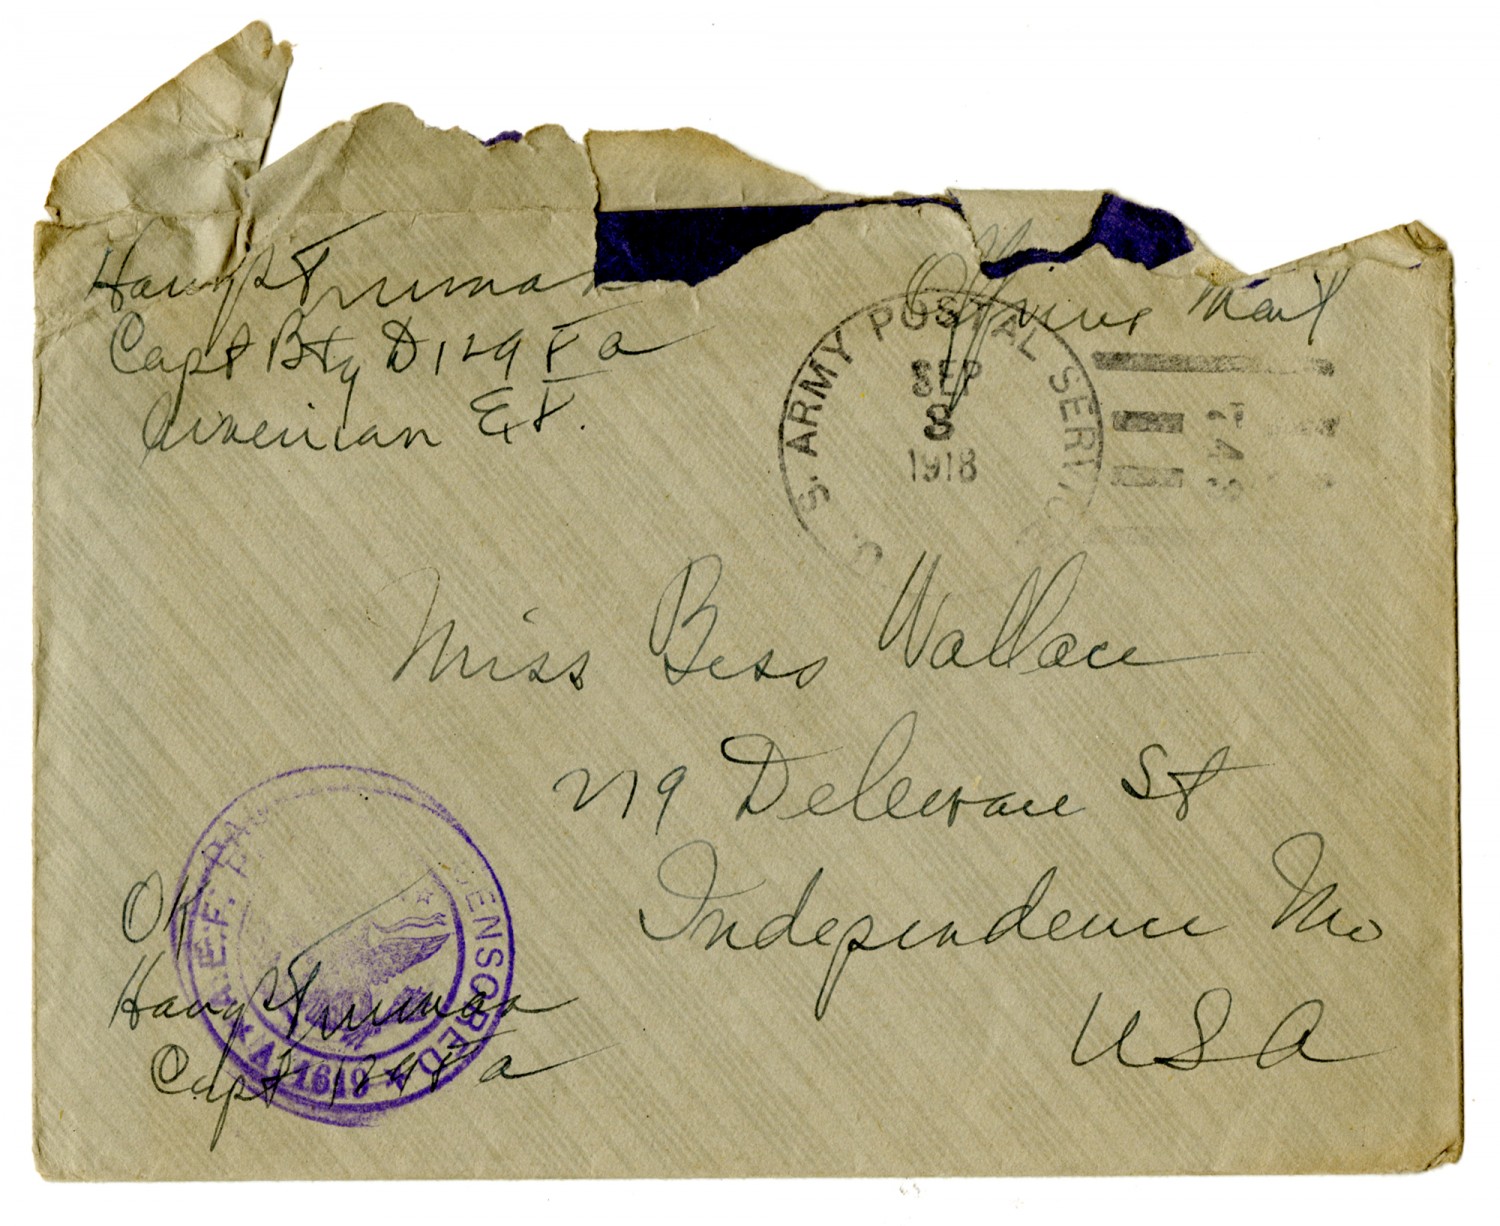 Harry S Truman
Capt Bty D 129 F a
American E F.
Officers Mail
U. S. ARMY POSTAL SERVICE
SEP
3
1918
Miss Bess Wallace
219 Deleware St
Independence Mo
USA
OK
Harry S Truman
Capt 129 F a
A.E.F. PASSED CENSORED
★ A.1619 ★